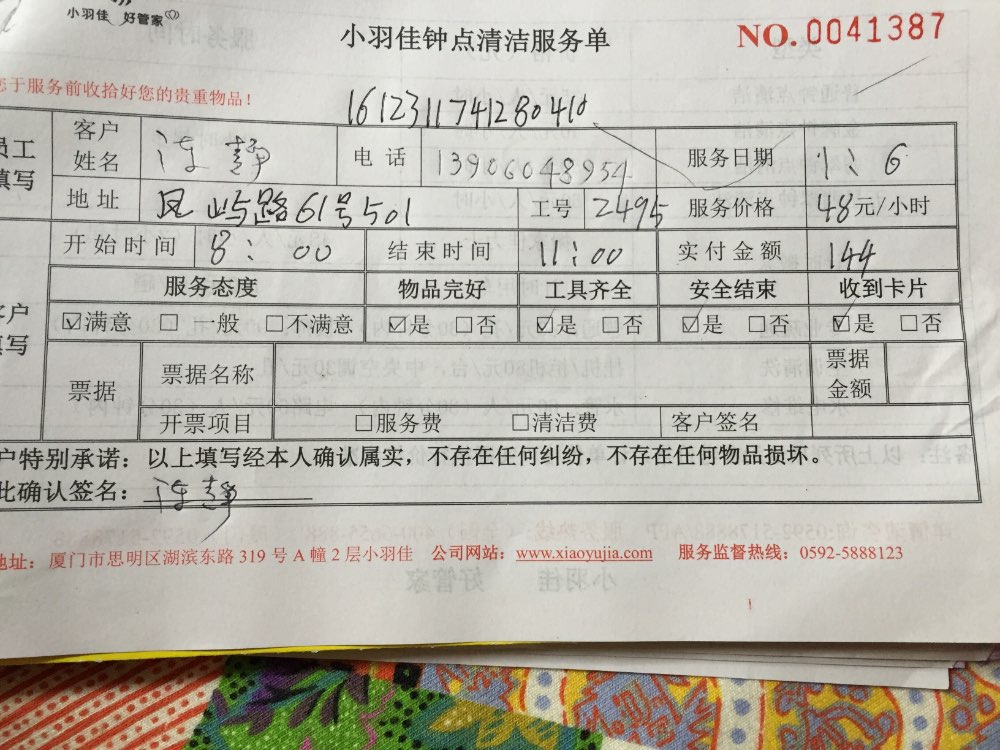 小羽佳 好管家
小羽佳钟点清洁服务单
NO. 0041387
您于服务前收拾好您的贵重物品!
1612311741280410
员工填写
客户姓名 连静 电话 13906048954 服务日期 1: 6
地址 凤屿路61号501 工号 2495 服务价格 48元/小时
开始时间 8:00 结束时间 11:00 实付金额 144
客户填写
服务态度 物品完好 工具齐全 安全结束 收到卡片
☑满意 □一般 □不满意 ☑是 □否 ☑是 □否 ☑是 □否 ☑是 □否
票据 票据名称 票据金额
开票项目 □服务费 □清洁费 客户签名
户特别承诺:以上填写经本人确认属实,不存在任何纠纷,不存在任何物品损坏。
此确认签名:连静
地址:厦门市思明区湖滨东路 319 号 A 幢 2 层小羽佳 公司网站:www.xiaoyujia.com 服务监督热线:0592-5888123